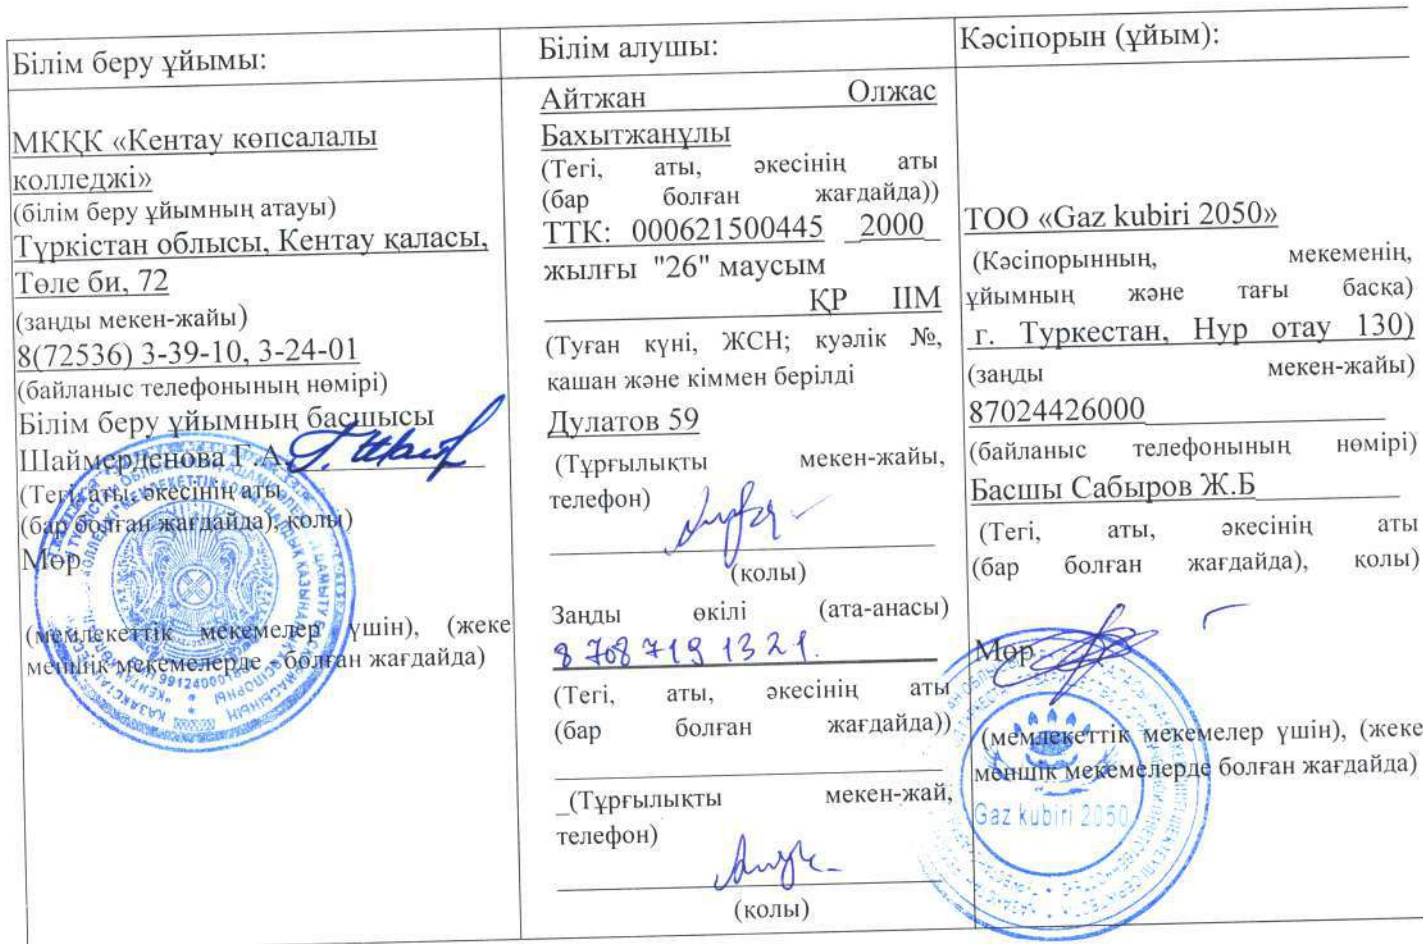 Білім беру ұйымы:
МКҚК «Кентау көпсалалы
колледжі»
(білім беру ұйымның атауы)
Түркістан облысы, Кентау қаласы,
Төле би, 72
(заңды мекен-жайы)
8(72536) 3-39-10, 3-24-01
(байланыс телефонының нөмірі)
Білім беру ұйымның басшысы
Шаймерденова Г.А.
(Тегі, аты, әкесінің аты
(бар болған жағдайда), қолы)
Мөр
(мемлекеттік мекемелер үшін), (жеке
меншік мекемелерде болған жағдайда)
Білім алушы:
Айтжан Олжас
Бахытжанұлы
(Тегі, аты, әкесінің аты
(бар болған жағдайда))
ТТК: 000621500445 _2000_
жылғы "26" маусым
ҚР ІІМ
(Туған күні, ЖСН; куәлік №,
қашан және кіммен берілді
Дулатов 59
(Тұрғылықты мекен-жайы,
телефон)
(қолы)
Заңды өкілі (ата-анасы)
8 708 719 1321.
(Тегі, аты, әкесінің аты
(бар болған жағдайда))
_(Тұрғылықты мекен-жай,
телефон)
(қолы)
Кәсіпорын (ұйым):
ТОО «Gaz kubiri 2050»
(Кәсіпорынның, мекеменің,
ұйымның және тағы басқа)
г. Туркестан, Нур отау 130)
(заңды мекен-жайы)
87024426000
(байланыс телефонының нөмірі)
Басшы Сабыров Ж.Б
(Тегі, аты, әкесінің аты
(бар болған жағдайда), қолы)
Мөр
(мемлекеттік мекемелер үшін), (жеке
меншік мекемелерде болған жағдайда)
Gaz kubiri 2050